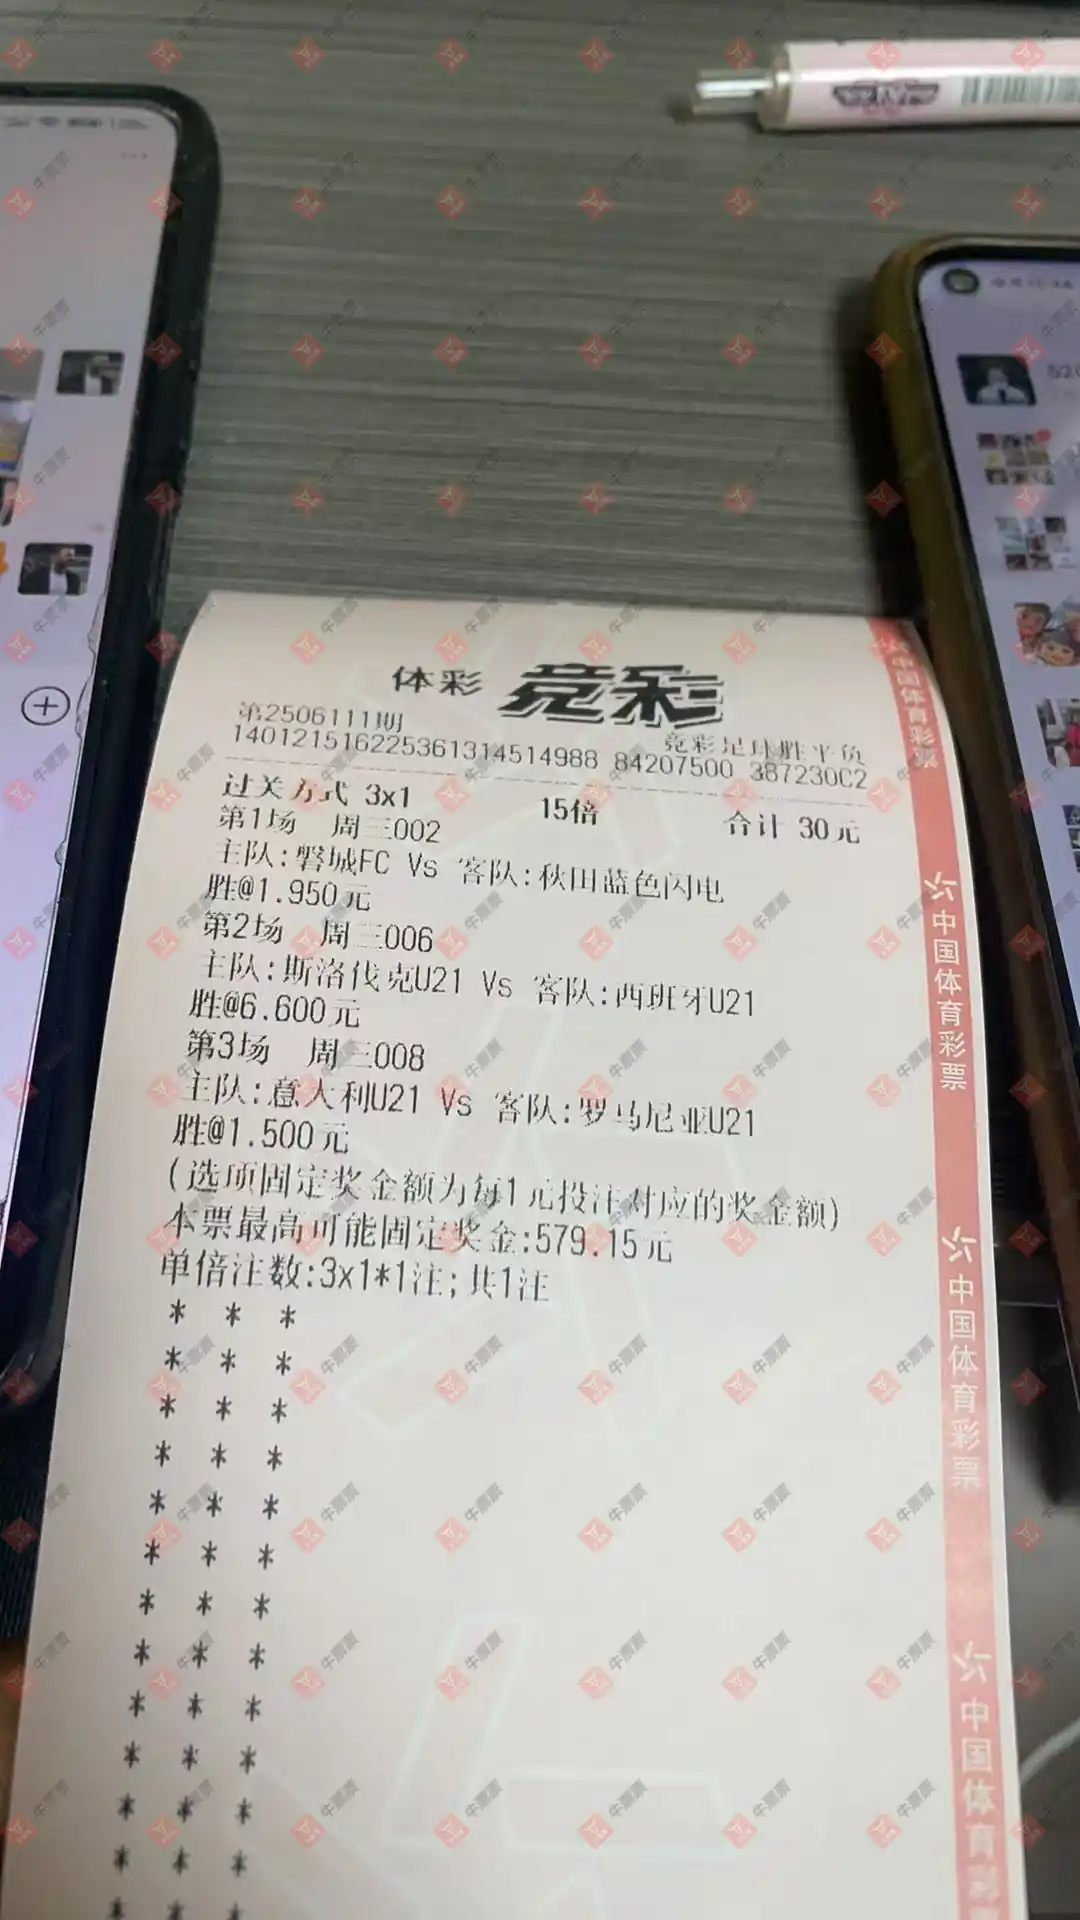 体彩 竞彩
第2506111期
竞彩足球胜平负
14012151622536131451​4988 84207500 387230C2
过关方式 3x1 15倍 合计 30元
第1场 周三002
主队:磐城FC Vs 客队:秋田蓝色闪电
胜@1.950元
第2场 周三006
主队:斯洛伐克U21 Vs 客队:西班牙U21
胜@6.600元
第3场 周三008
主队:意大利U21 Vs 客队:罗马尼亚U21
胜@1.500元
(选项固定奖金额为每1元投注对应的奖金额)
本票最高可能固定奖金:579.15元
单倍注数:3x1*1注;共1注
* * *
* * *
* * *
* * *
* * *
* * *
* * *
* * *
* * *
* * *
* * *
* * *
* * *
中国体育彩票
中国体育彩票
中国体育彩票
中国体育彩票
牛票票